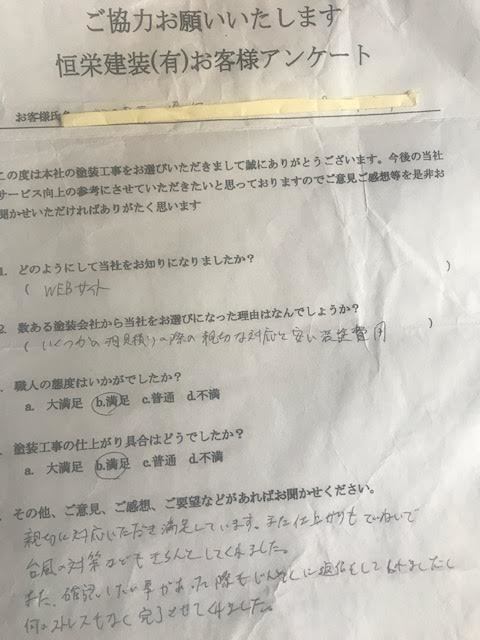 ご協力お願いいたします
恒栄建装(有)お客様アンケート
お客様氏名
この度は本社の塗装工事をお選びいただきまして誠にありがとうございます。今後の当社
サービス向上の参考にさせていただきたいと思っておりますのでご意見ご感想等を是非お
聞かせいただければありがたく思います
1. どのようにして当社をお知りになりましたか?
( WEBサイト )
2. 数ある塗装会社から当社をお選びになった理由はなんでしょうか?
( いくつかの相見積りの際の親切な対応と安い塗装費用 )
. 職人の態度はいかがでしたか?
a. 大満足 b.満足 c.普通 d.不満
. 塗装工事の仕上がり具合はどうでしたか?
a. 大満足 b.満足 c.普通 d.不満
. その他、ご意見、ご感想、ご要望などがあればお聞かせください。
親切に対応いただき満足しています。また仕上がりもていねいで
台風の対策などもきちんとしてくれました。
また、確認したい事があった際もじん速に返信をしてくれましたし
何のストレスもなく完了させてくれました。